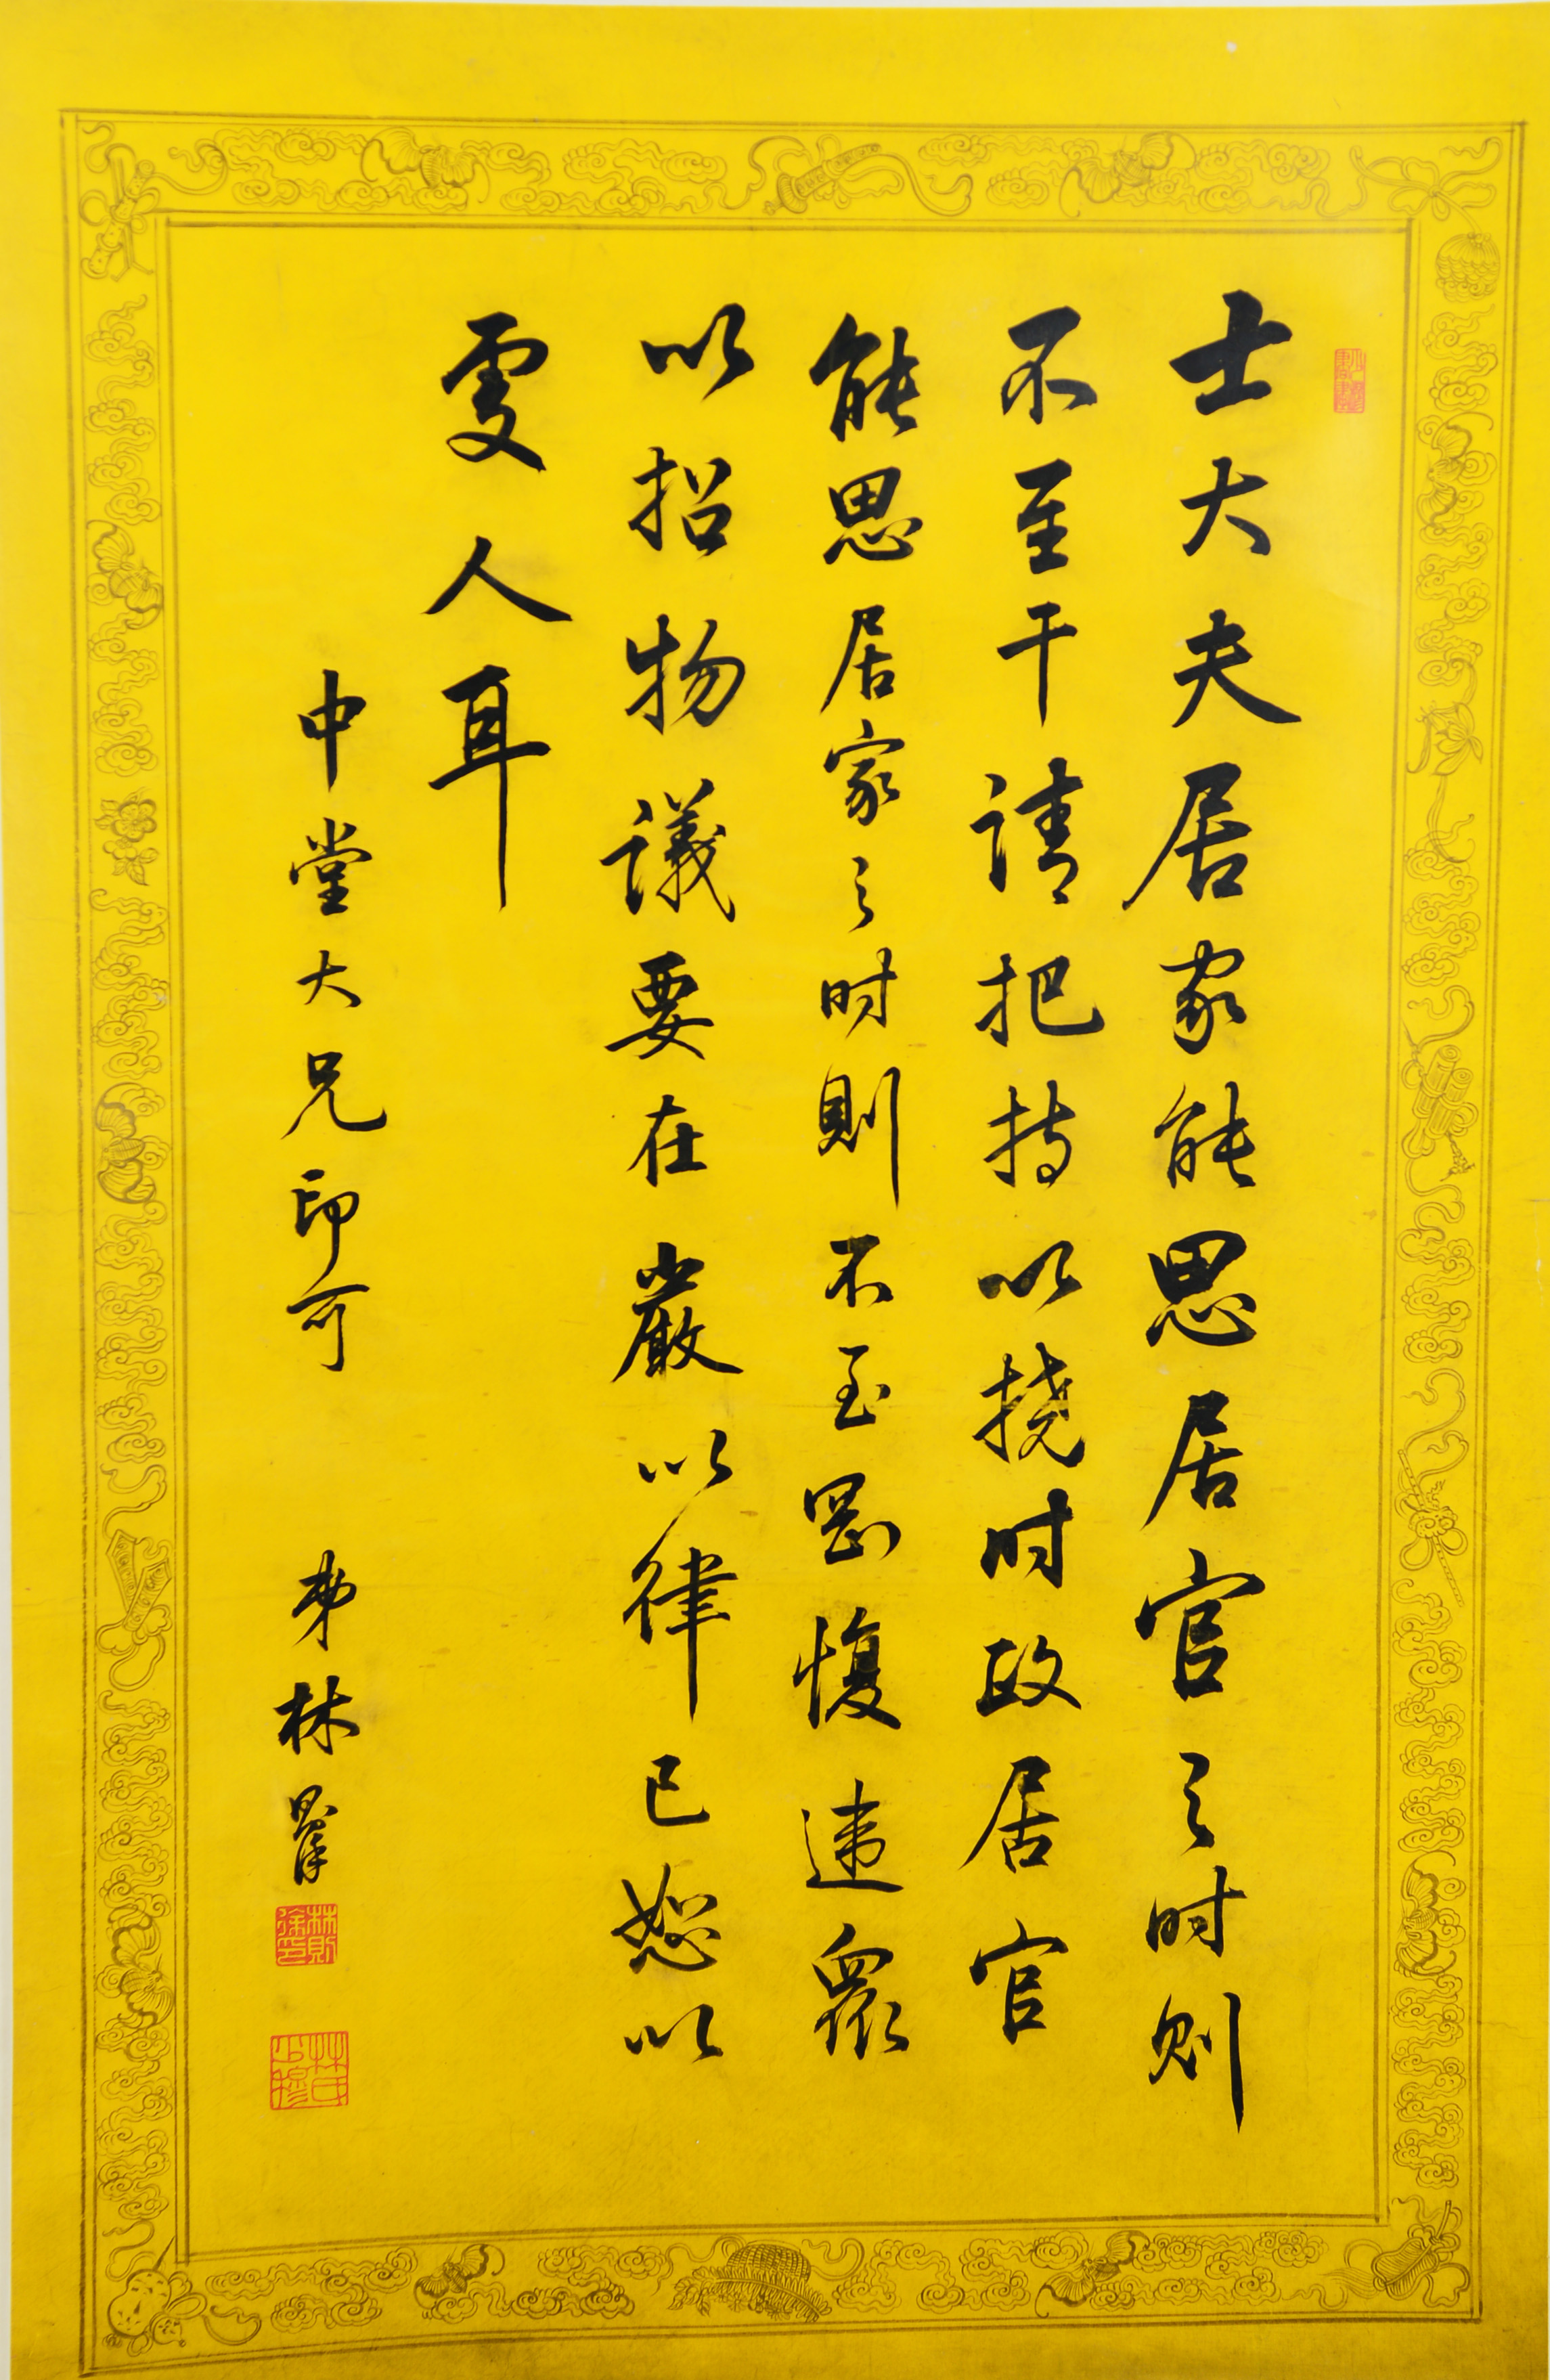 士大夫居家能思居官之时则
不至干請把持以撓时政居官
能思居家之时則不至愎違衆
以招物議要在嚴以律已恕以
受人耳
中堂大兄印可 弟林
林則徐印